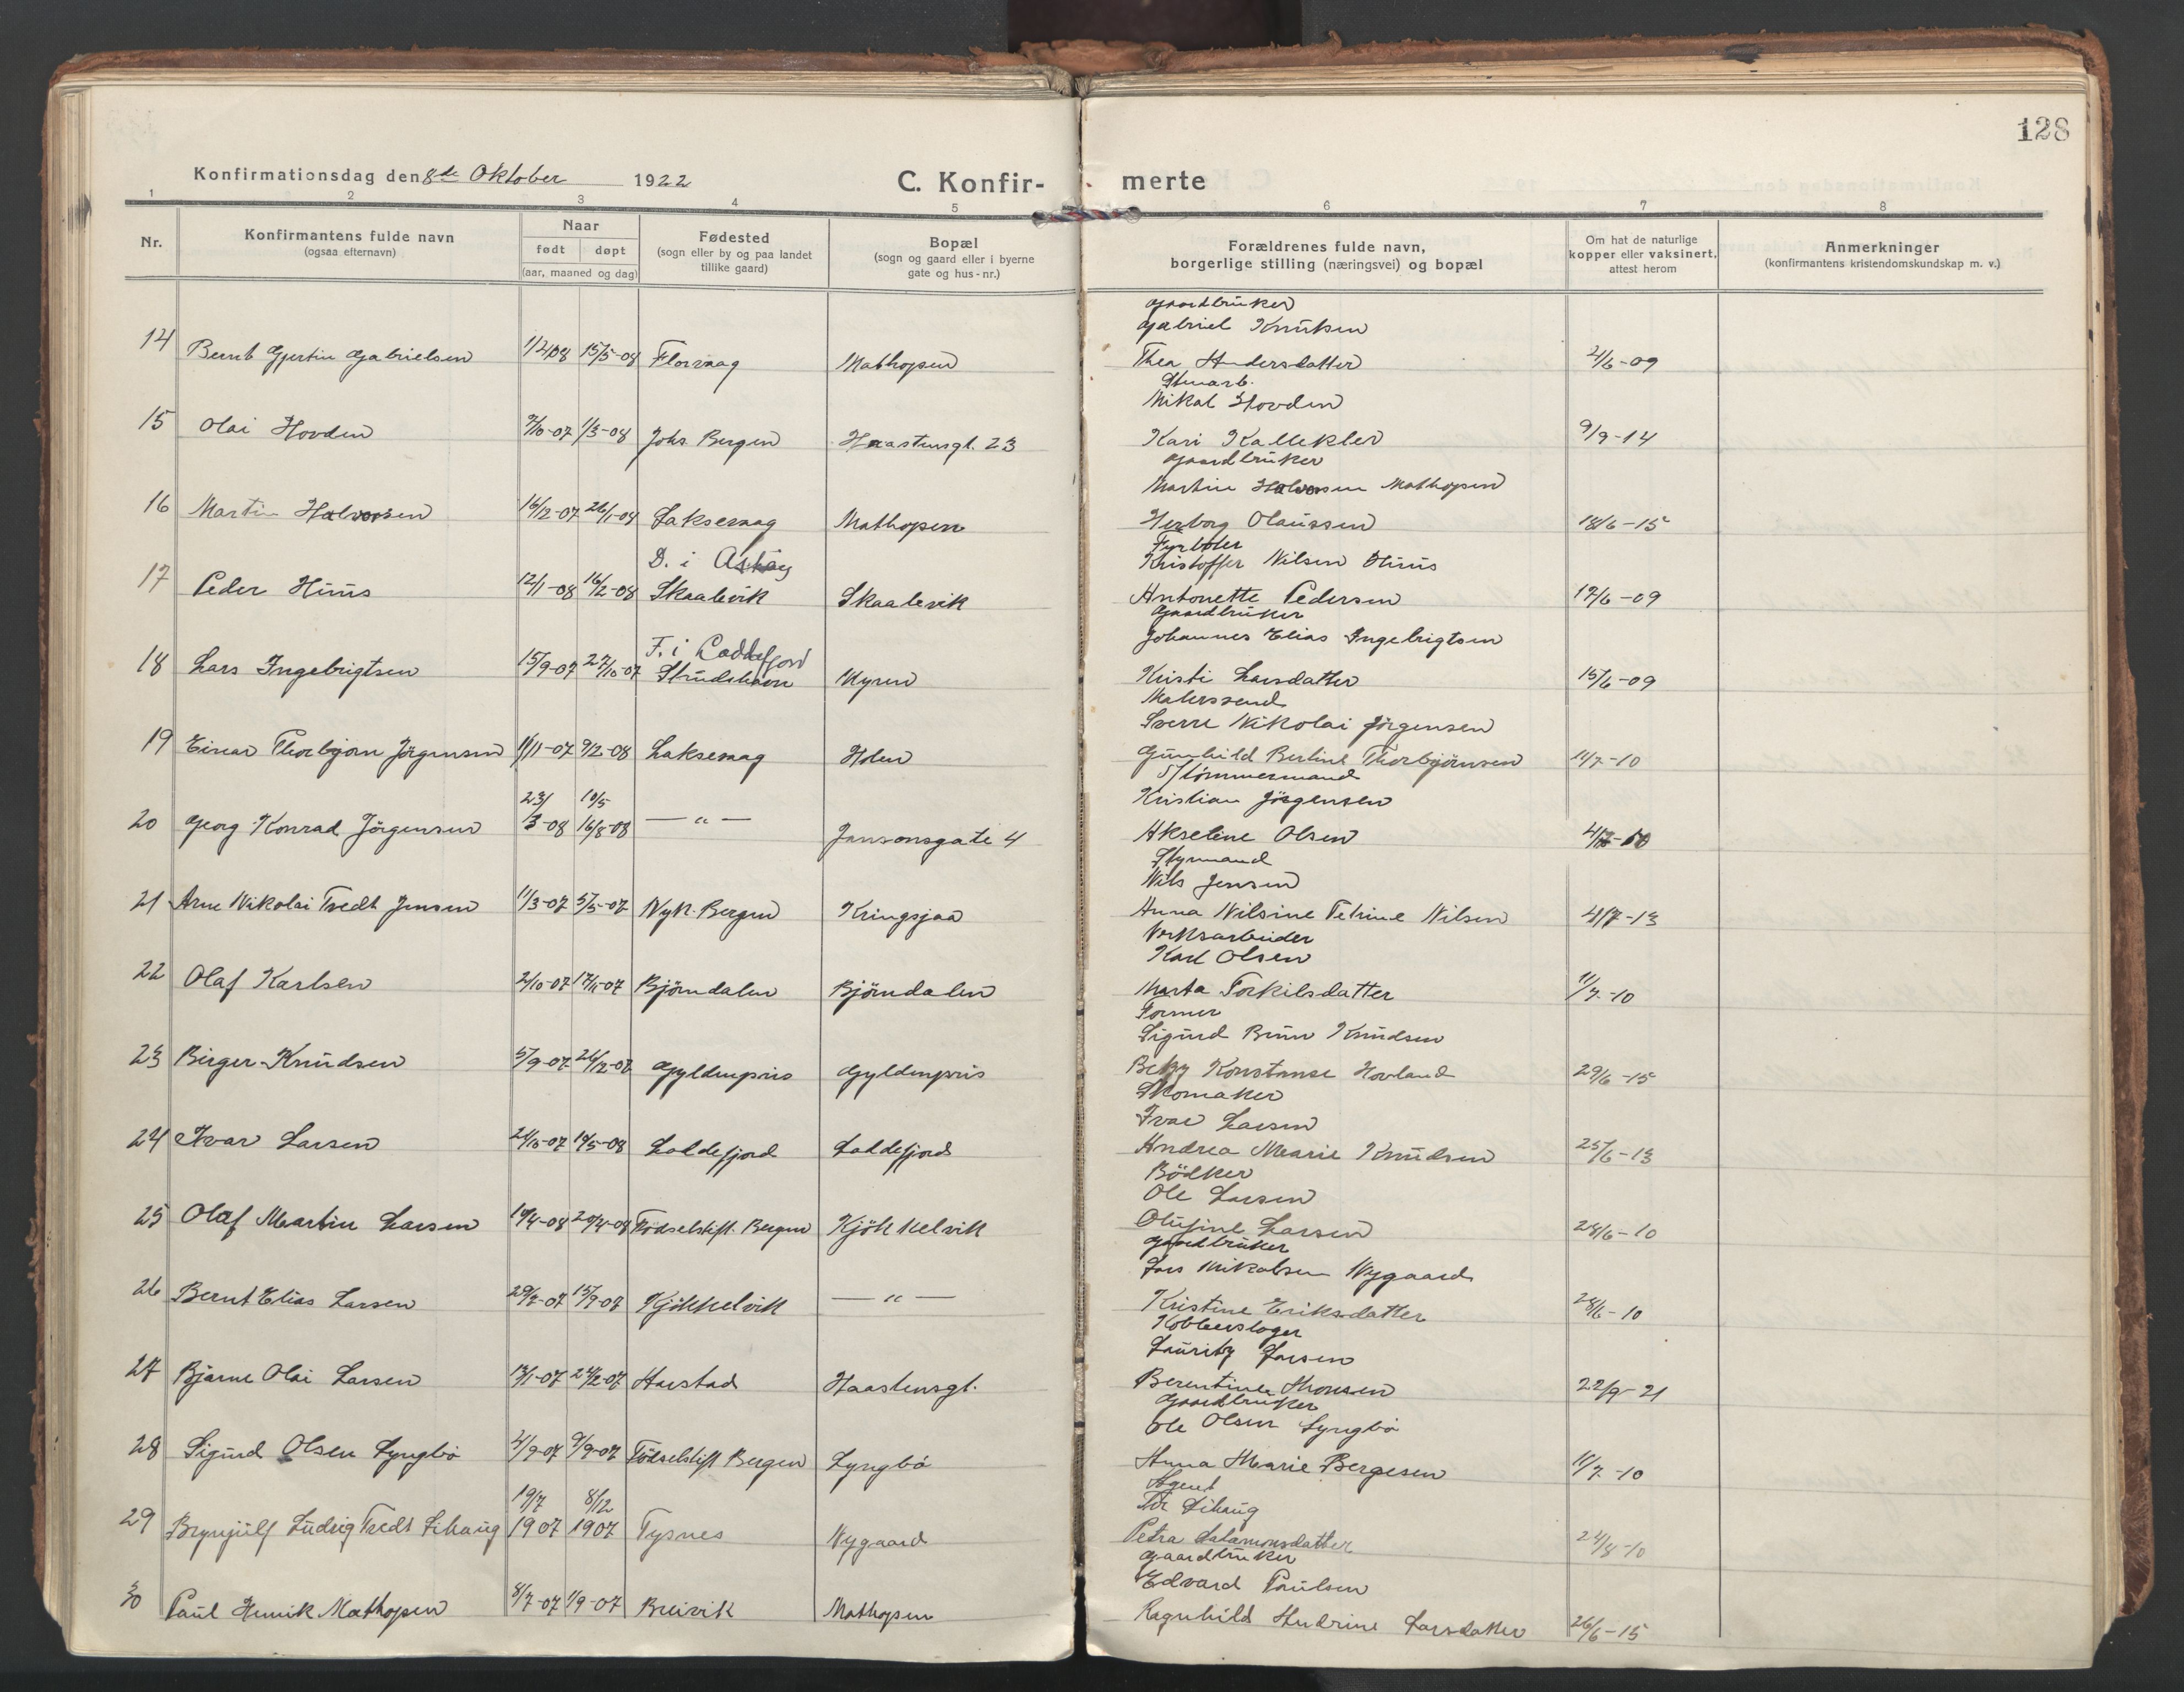 128
Konfirmationsdag den 8de Oktober 1922
C. Konfir- merte
1 2 3 4 5 6 7 8
Nr.
Konfirmantens fulde navn
(ogsaa efternavn)
Naar
født døpt
(aar, maaned og dag)
Fødested
(sogn eller by og paa landet
tillike gaard)
Bopæl
(sogn og gaard eller i byerne
gate og hus-nr.)
Forældrenes fulde navn,
borgerlige stilling (næringsvei) og bopæl
Om hat de naturlige
kopper eller vaksinert,
attest herom
Anmerkninger
(konfirmantens kristendomskundskap m. v.)
Gaardbruker
Gabriel Knutsen
14 Bernt Gjertin Gabrielsen 15/5-08 Florvaag Mathopen Thea Andersdatter 2/6-09
Mikal Hovden
15 Olai Hovden 1/3-08 Johs. Bergen Haastensgt. 23 Kari 9/9-14
Gaardbruker
Martin Halvorsen Mathopen
16 Martin Halvorsen 16/12-07 26/1-08 Laksevaag Mathopen Herborg Olaussen 18/6-15
Fyrbøter
D. i Askøy Kristoffer Nilsen Huus
17 Peder Huus 12/1-08 16/2-08 Skaalevik Skaalevik Antonette Pedersen 19/6-09
Gaardbruker
F. i Loddefjord Johannes Elias Ingebrigtsen
18 Lars Ingebrigtsen 15/9-07 27/10-07 Strudshavn Myren Kristi Larsdatter 15/6-09
Malersvend
Sverre Nikolai Jörgensen
19 Einar Thorbjörn Jörgensen 1/11-07 9/2-08 Laksevaag Holen Gunhild Berline Thorbjörnsen 11/7-10
Tömmermand
23/ 10/5 Kristian Jörgensen
20 Georg Konrad Jörgensen 3-08 16/8-08 — " — Jansonsgate 4 Akseline Olsen
Styrmand
Nils Jensen
21 Arne Nikolai Tvedt Jensen 11/3-07 5/5-07 Nyk. Bergen Kringsjaa Anna Nilsine Petrine Nilsen 4/7-13
Verksarbeider
Karl Olsen
22 Olaf Karlsen 2/10-07 17/11-07 Björndalen Björndalen Marta Torkilsdatter 11/7-10
Former
Sigurd Bruun Knudsen
23 Birger Knudsen 5/9-07 26/12-07 Gyldenpris Gyldenpris Betzy Konstanse Hovland 29/6-15
Skomaker
Ivar Larsen
24 Ivar Larsen 24/10-07 Loddefjord Loddefjord Andrea Marie Knudsen 25/6-13
Bödker
Ole Larsen
25 Olaf Martin Larsen 19/4-08 29/4-08 Födselstift. Bergen Kjökkelvik Olufine Larsen 28/6-10
Gaardbruker
Lars Mikalsen Nygaard
26 Bernt Elias Larsen 29/7-07 15/9-07 Kjökkelvik — " — Kristine Eriksdatter 28/6-10
Kobberslager
Lauritz Larsen
27 Bjarne Olai Larsen 13/1-07 24/2-07 Harstad Haastensgt. Berentine Monsen 22/9-21
Gaardbruker
Ole Olsen Lyngbö
28 Sigurd Olsen Lyngbö 4/9-07 9/9-07 Födselstift Bergen Lyngbö Anna Marie Bergesen 11/7-10
Agent
19/7 8/12 Lihaug
29 Brynjulf Ludvig Tvedt Lihaug 1907 1907 Tysnes Nygaard Petra Salamonsdatter 24/8-10
Gaardbruker
Edvard Paulsen
30 Paul Henrik Mathopen 8/7-07 1/9-07 Breivik Mathopen Ragnhild Andrine Larsdatter 26/6-15